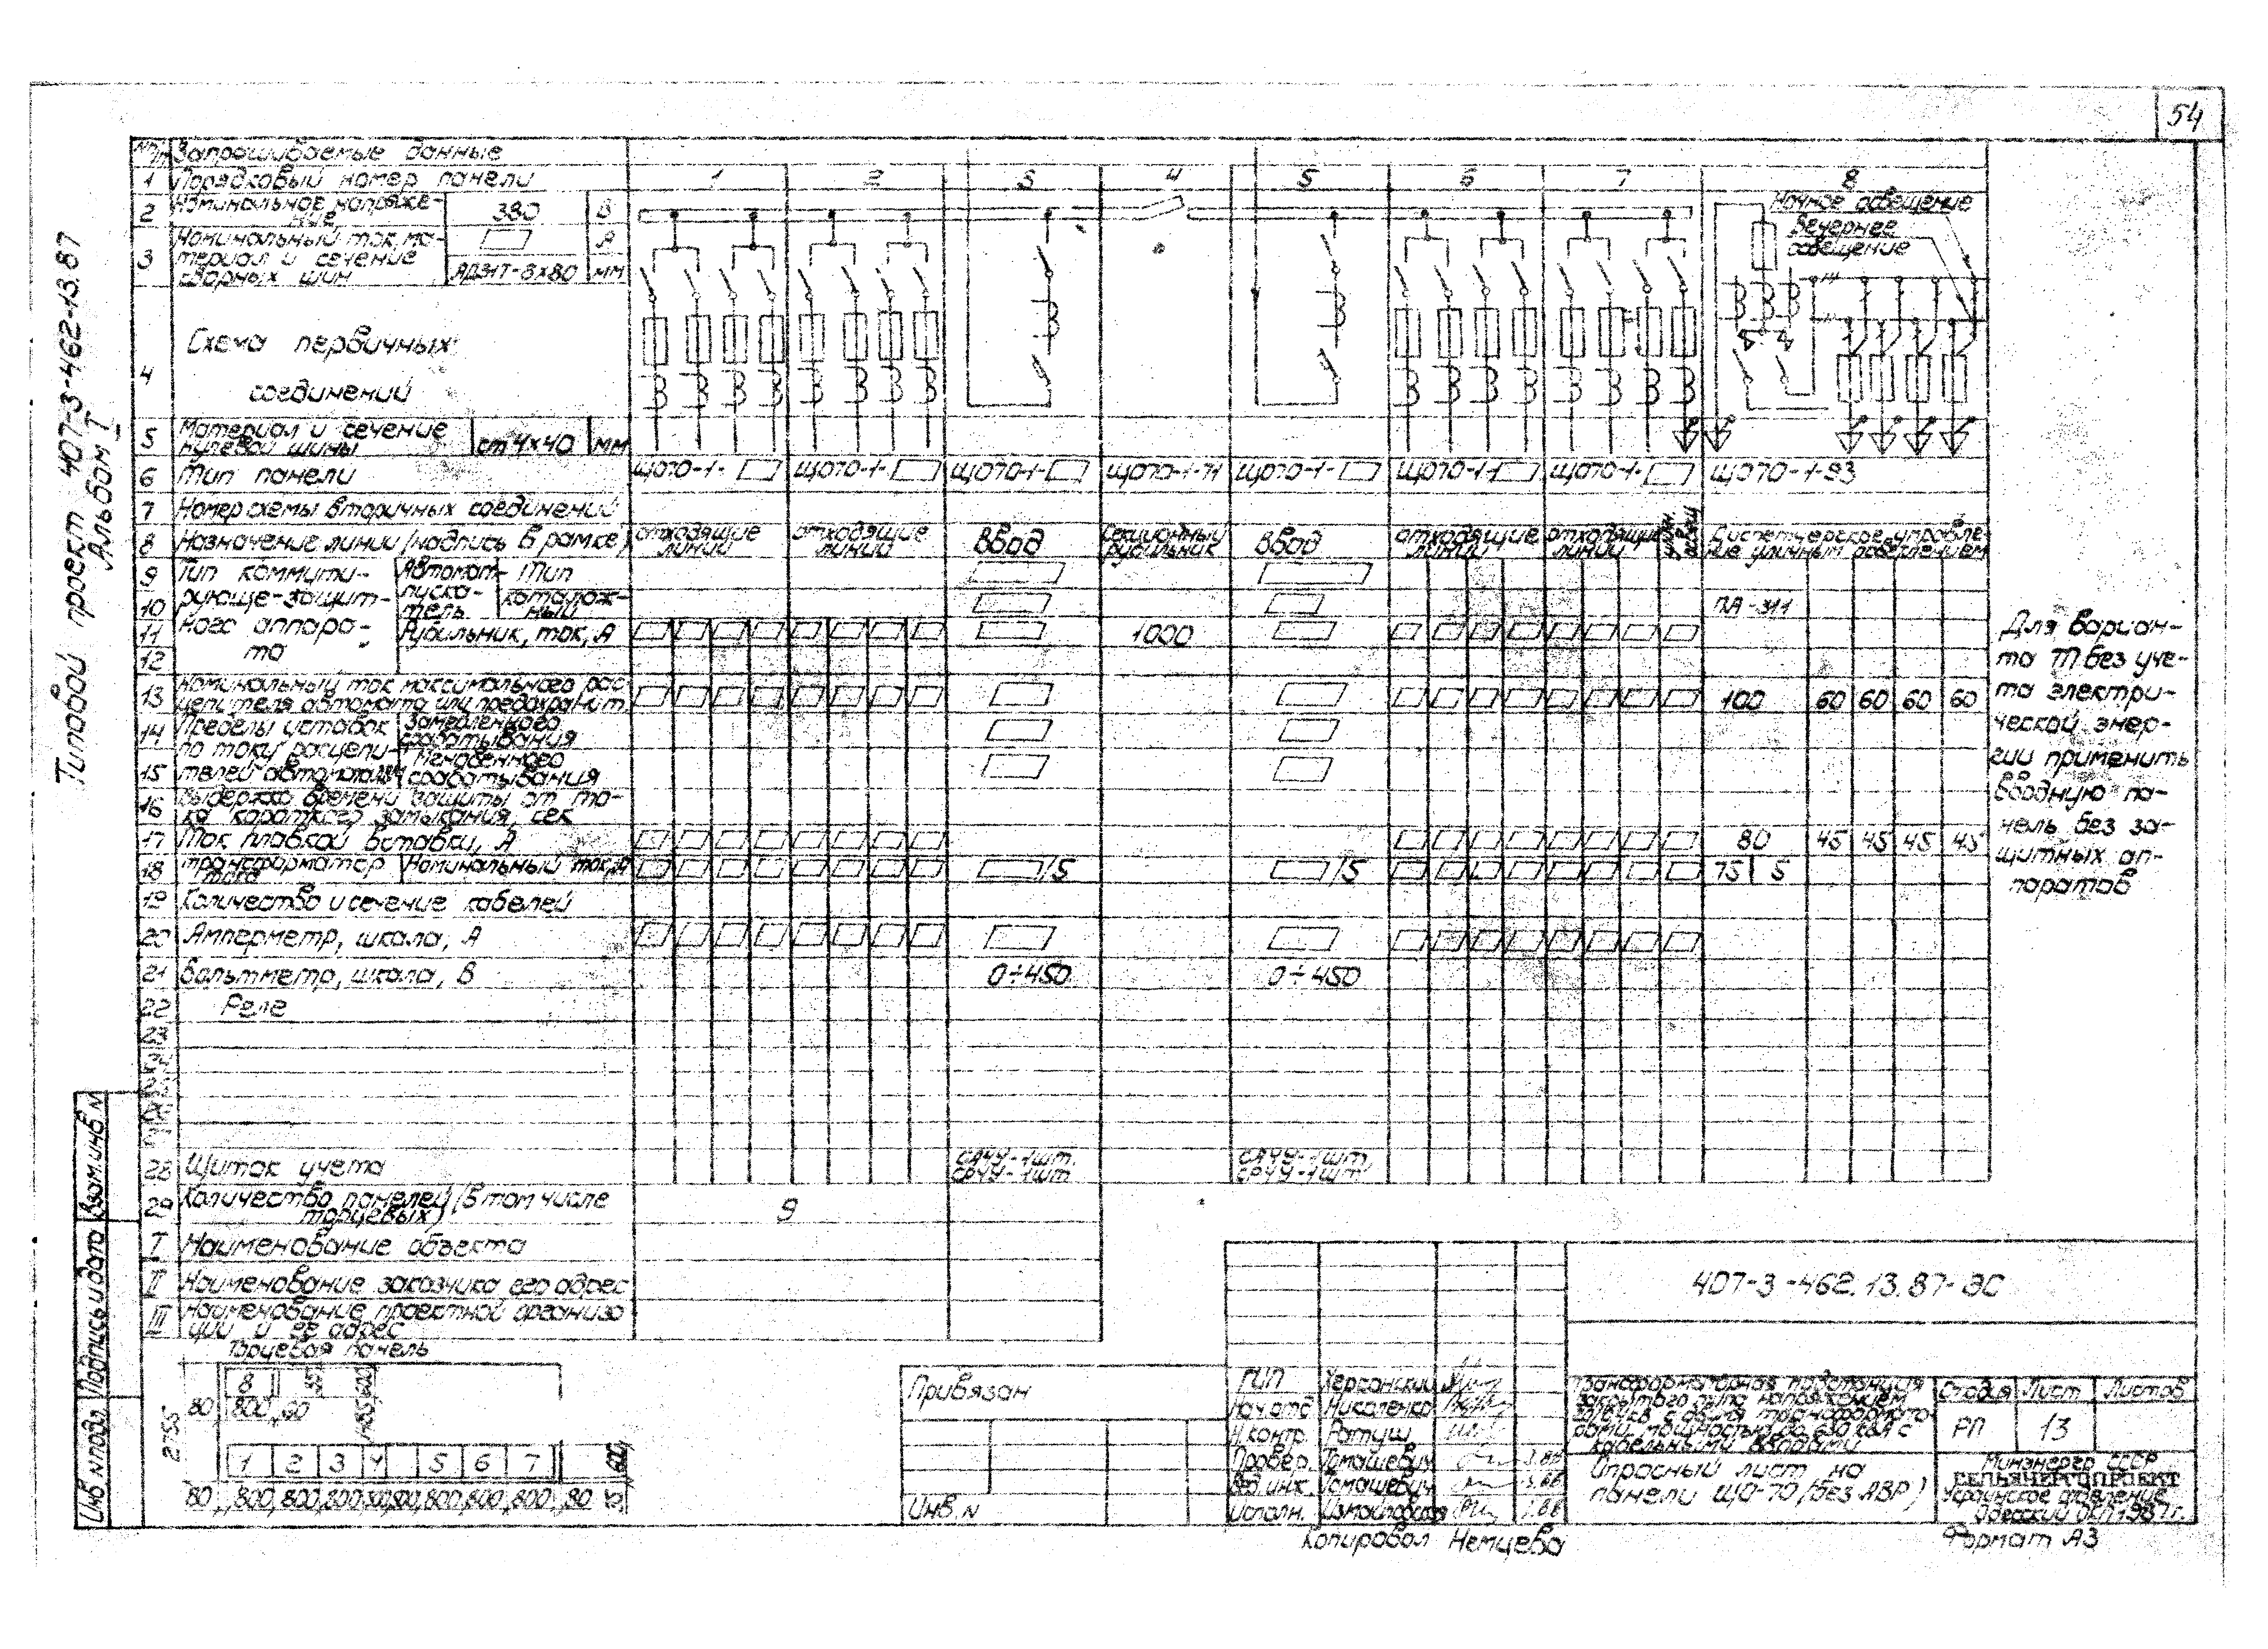 54
Типовой проект 407-3-462-13.87
Альбом I
№ п/п Запрашиваемые данные
1 Порядковый номер панели 1 2 3 4 5 6 7 8
2 Номинальное напряжение 380 В
3 Номинальный ток, материал и сечение сборных шин А
АД31Т-8х80 мм
Ночное освещение
Вечернее освещение
4 Схема первичных
соединений
5 Материал и сечение нулевой шины ст 4х40 мм
6 Тип панели ЩО70-1- ЩО70-1- ЩО70-1- ЩО70-1-71 ЩО70-1- ЩО70-1- ЩО70-1- ЩО70-1-93
7 Номер схемы вторичных соединений
8 Назначение линии /надпись в рамке/ отходящие линии отходящие линии Ввод Секционный рубильник Ввод отходящие линии отходящие линии Диспетчерское управление уличным освещением
9 Тип коммути- Автомат Тип
10 рующе-защит- пуска- каталож- ПА-311
тель ный
11 ного аппара- Рубильник, ток, А 1000
12 та
13 Номинальный ток максимального рас-
цепителя автомата или предохранит. 100 60 60 60 60
14 Пределы уставок Замедленного срабатывания
по току расцепи-
15 телей автомата Мгновенного срабатывания
16 Выдержка времени защиты от то-
ка короткого замыкания, сек
17 Ток плавкой вставки, А 80 45 45 45 45
18 Трансформатор тока Номинальный ток, А /5 /5 75 5
19 Количество и сечение кабелей
20 Амперметр, шкала, А
21 Вольтметр, шкала, В 0÷450 0÷450
22 Реле
23
28 Щиток учета САЧУ-1шт. САЧУ-1шт.
СРЧУ-1шт. СРЧУ-1шт.
29 Количество панелей /в том числе
торцевых) 9
I Наименование объекта
II Наименование заказчика его адрес
III Наименование проектной организа
ции и ее адрес
Для вариан-
та ТП без уче-
та электри-
ческой энер-
гии применить
вводную па-
нель без за-
щитных ап-
паратов
Торцевая панель
8
80 800 90
1 2 3 4 5 6 7
80 800 800 800 800 800 800 80
Взам. инв N
Подпись и дата
Инв N подл.
Привязан
Инв. N
407-3-462.13.87-ЭС
ГИП Херсонский
Нач.отд. Николенко
Н.контр. Ратуш
Провер. Томашевич
Вед.инж. Томашевич
Исполн.
Трансформаторная подстанция
закрытого типа напряжением
с двумя трансформато-
рами мощностью до 630 кВА с
кабельными вводами
Стадия Лист Листов
РП 13
Опросный лист на
панели ЩО-70 /без АВР)
Минэнерго СССР
СЕЛЬЭНЕРГОПРОЕКТ
Украинское отделение
Одесский 1987г.
Копировал Немцева
Формат А3